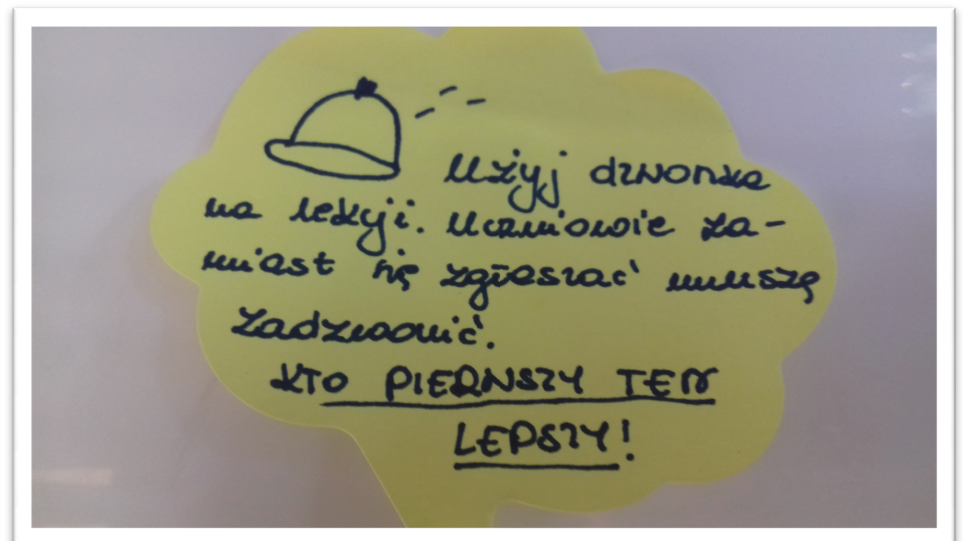 Użyj dzwonka
na lekcji. Uczniowie za-
miast się zgłaszać muszą
zadzwonić.
KTO PIERWSZY TEN
LEPSZY!